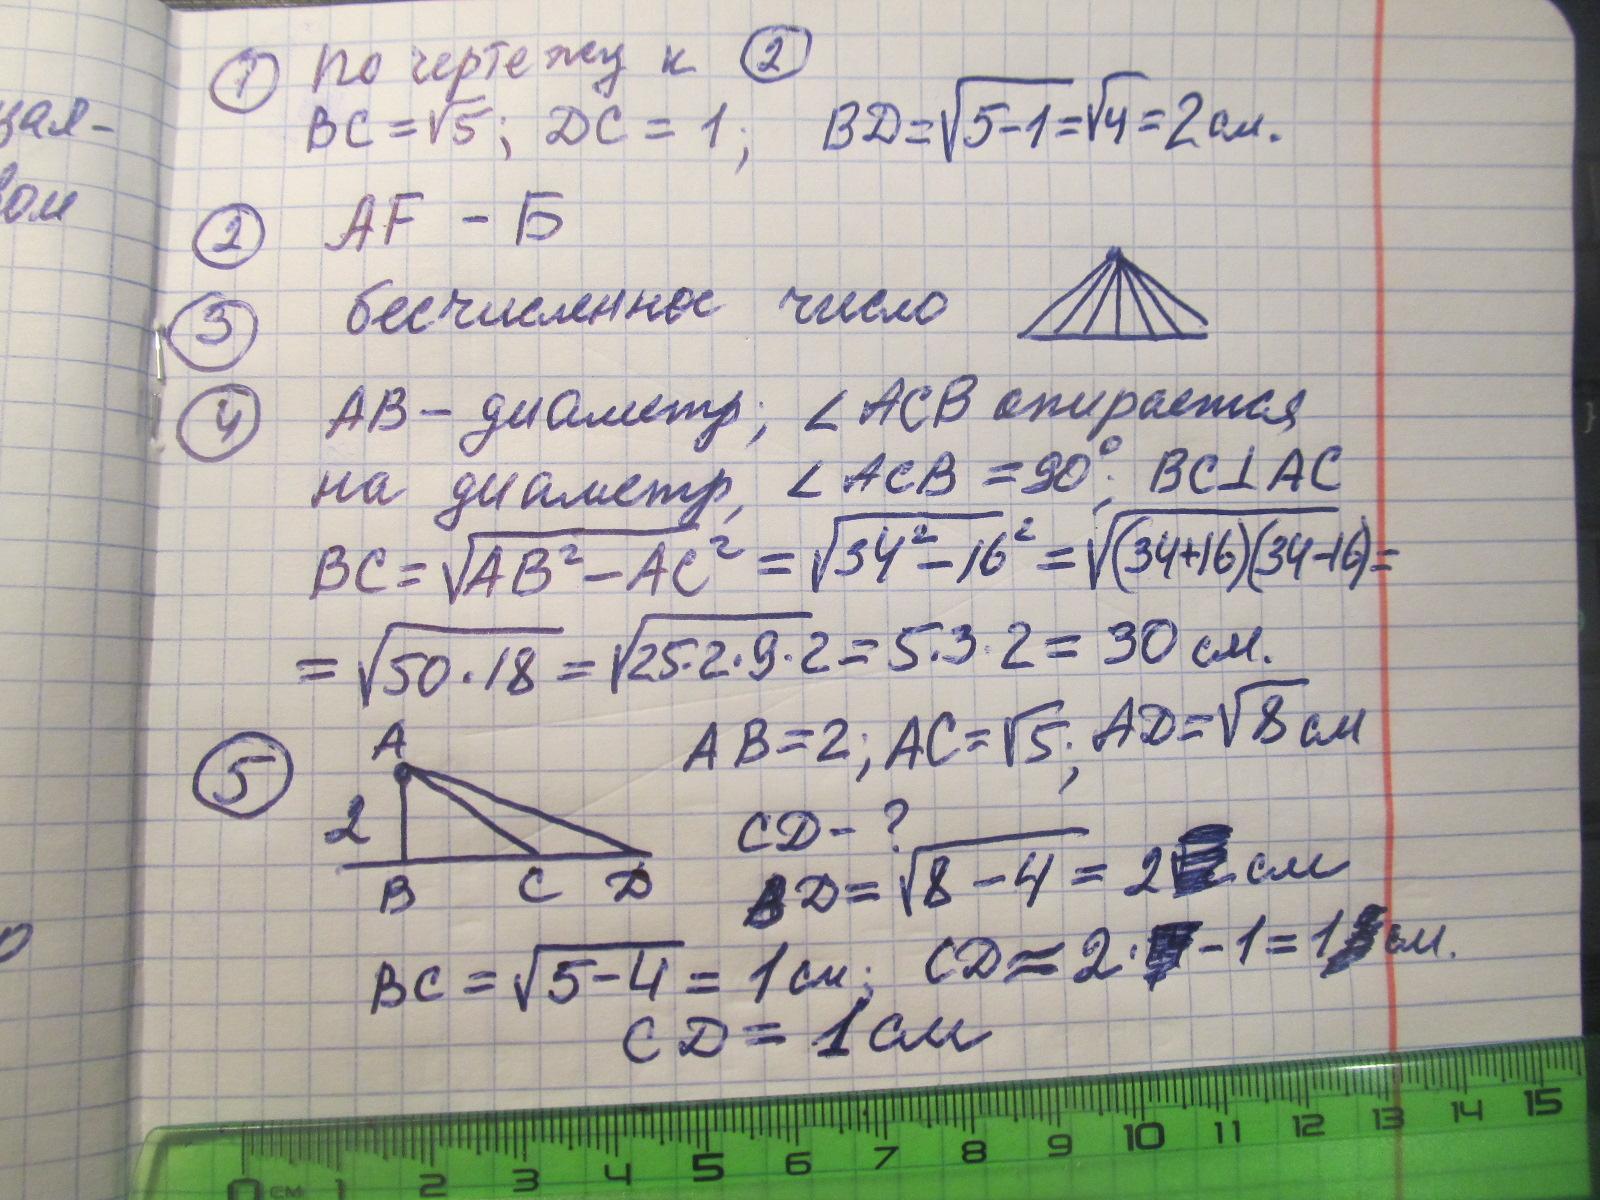 щая-
вом
① По чертежу к ②
BC = √5; DC = 1; BD = √5-1 = √4 = 2 см.
② AF - Б
③ бесчисленное число
④ AB - диаметр; ∠ACB опирается
на диаметр, ∠ACB = 90°; BC⊥AC
BC = √AB² - AC² = √34² - 16² = √(34+16)(34-16) =
= √50·18 = √25·2·9·2 = 5·3·2 = 30 см.
⑤ A AB = 2; AC = √5; AD = √8 см
2 CD - ?
B C D BD = √8 - 4 = 2 см
BC = √5-4 = 1 см; CD = 2 · - 1 = 1 см.
CD = 1 см
0 см 1 2 3 4 5 6 7 8 9 10 11 12 13 14 15